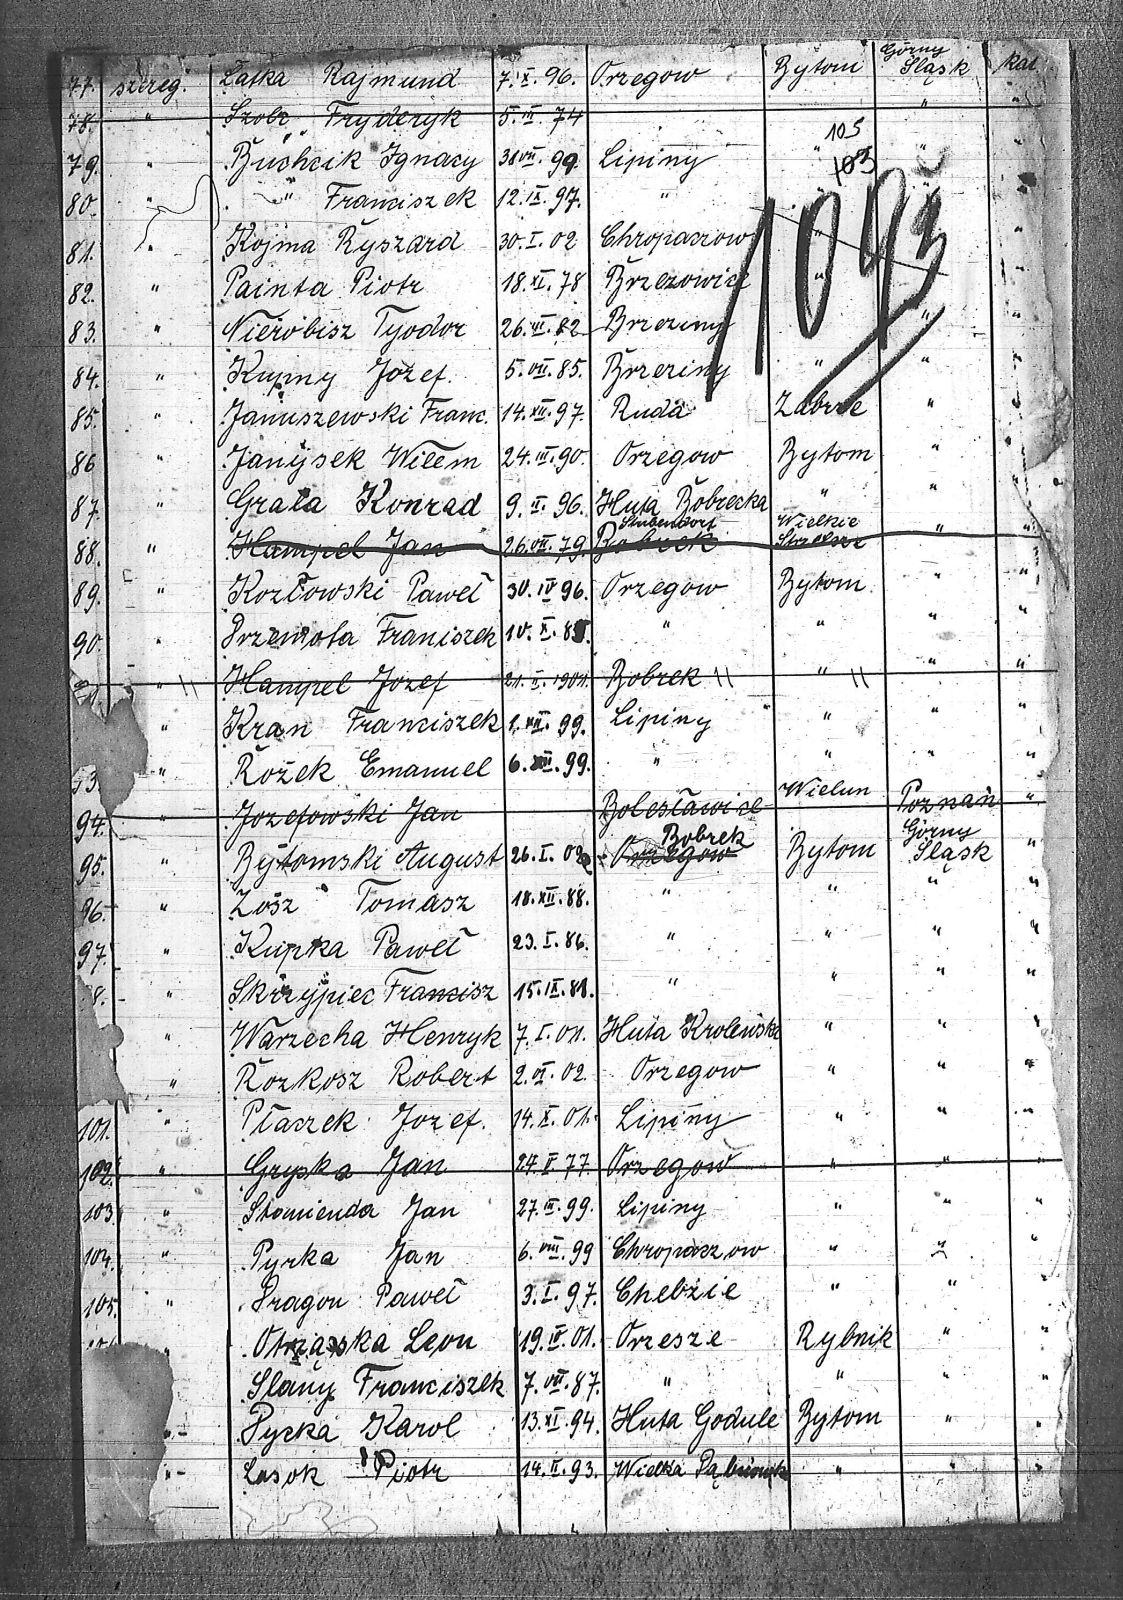 77. szereg. Latka Rajmund 7. X. 96. Orzegow Bytom Górny Śląsk kat.
78. " Szobr Fryderyk 5. III. 74 "
105
79. " Buchcik Ignacy 30 VII. 99. Lipiny " 103 "
80. " " Franciszek 12. IX. 97. "
81. " Kojma Ryszard 30. I. 02 Chropaczow " 1093
82. " Painta Piotr 18. XI. 78 Brzezowice "
83. " Nierobisz Tyodor 26. VI. 82 Brzeziny "
84. " Kupny Jozef. 5. VII. 85. Brzeziny " "
85. " Januszewski Franc. 14. XII. 97. Ruda Zabrze "
86 " Janysek Wilem 24. III. 90. Orzegow Bytom "
87. " Grala Konrad 9. II. 96. Huta Bobrecka " " "
88. " Hampel Jan 26. VII. 79. Bobrek Stubendorf Wielkie Strzelce " "
89. " Kozłowski Paweł 30. IV 96. Orzegow Bytom. " "
90. " Przemota Franiszek 10. X. " " " "
" Hampel Jozef 21. II. 1901. Bobrek " " "
" Kran Franciszek 1. VII. 99. Lipiny " " "
93. " Rożek Emanuel 6. XII. 99. " " " "
94. " Jozefowski Jan Bolesławice Wielun Poznań "
95. " Bytomski August 26. I. 02 Orzegow Bobrek Bytom Górny Śląsk "
96. " Zosz Tomasz 18. XII. 88. " " " "
97. " Kupka Paweł 23. I. 86. " " " "
8. " Skrzypiec Francisz 15. IX. 81. " " " "
" Warzecha Henryk 7. I. 01. Huta Krolewska " " "
" Rozkosz Robert 2. VI. 02. Orzegow " " "
101. " Płaczek Jozef. 14. X. 01. Lipiny " " "
102. " Gryska Jan 24. V. 77. Orzegow " " "
103. " Słomienda Jan 27. III. 99. Lipiny " " "
104. " Pyrka Jan 6. VIII. 99 Chropaczow " " "
105. " Dragon Paweł 3. I. 97. Chebzie " " "
" Otrząska Leon 19. IV. 01. Orzesze Rybnik " "
Slany Franciszek 7. VII. 87. " " " "
" Pycka Karol 13. XI. 94. Huta Godule Bytom " "
" Lasok Piotr 14. II. 93. Wielka Dąbrowka " " "